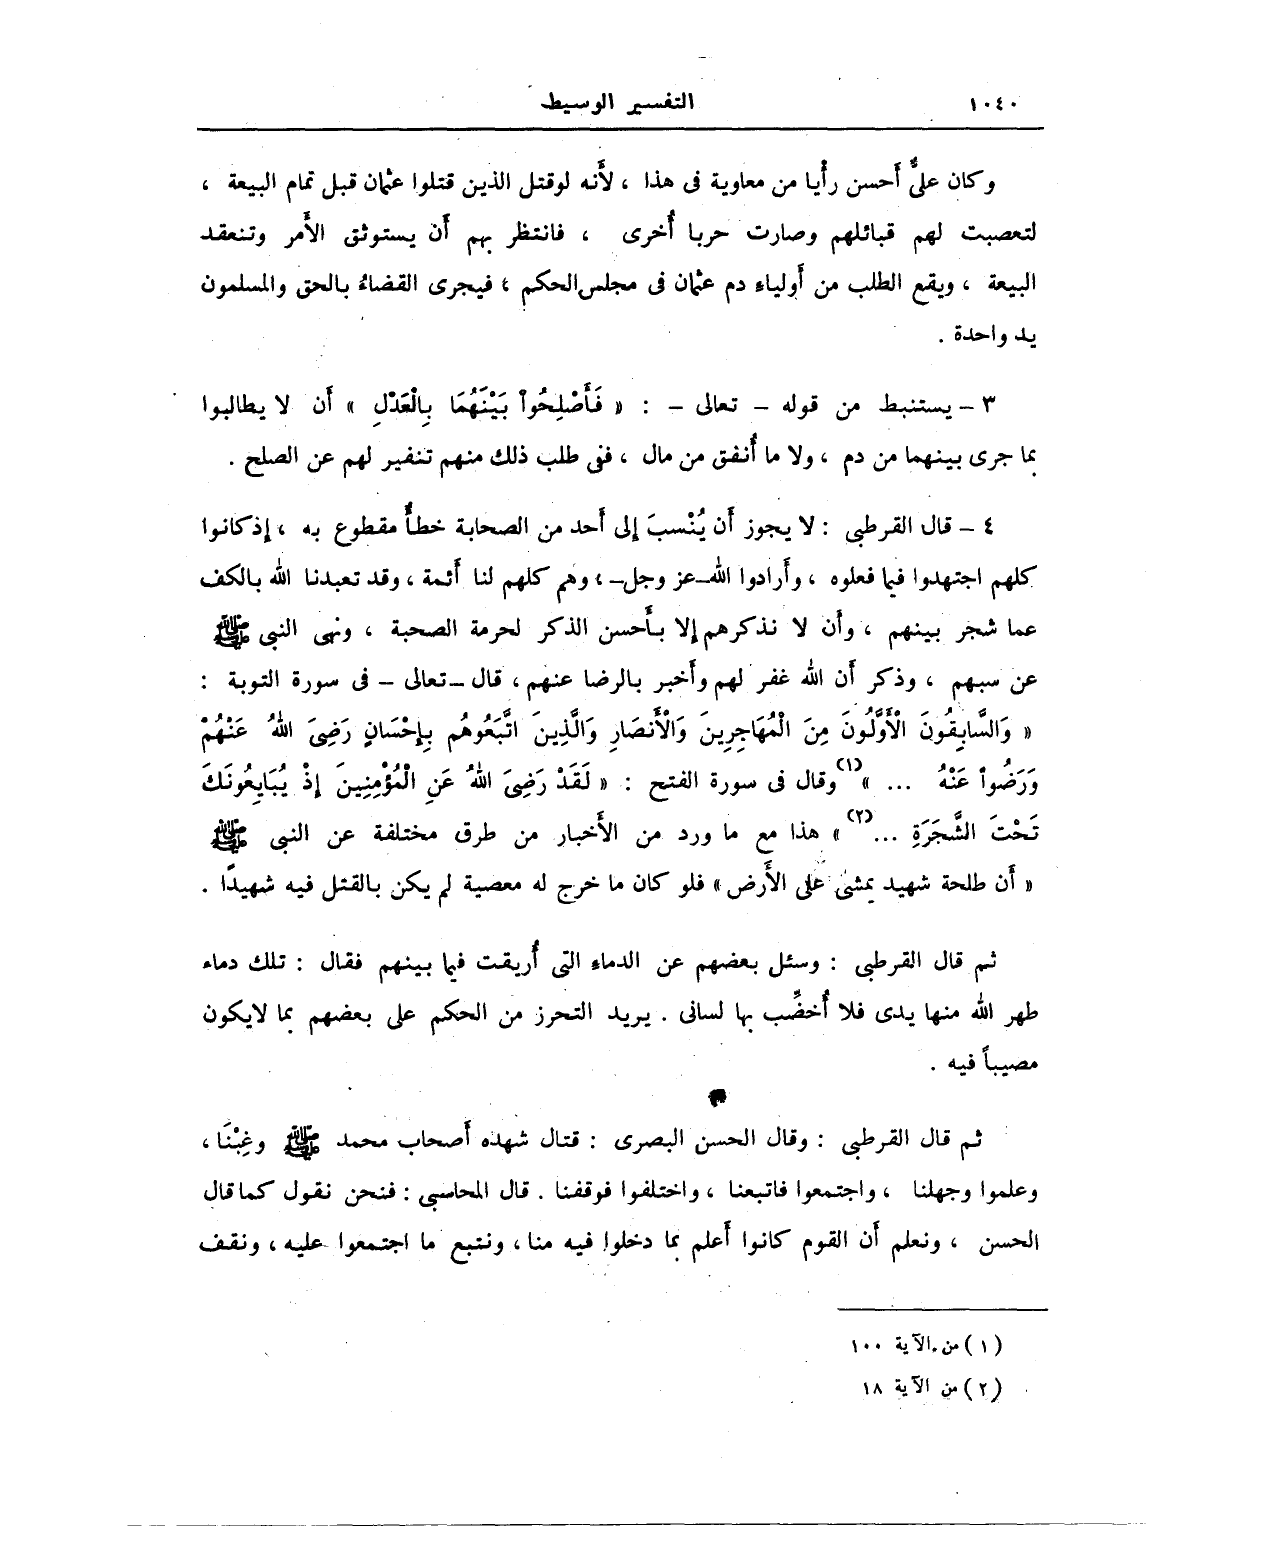 ١٠٤٠ التفسير الوسيط
وكان علىٌّ أحسن رأْيا من معاوية فى هذا ، لأَنه لوقتل الذين قتلوا عثمان قبل تمام البيعة ،
لتعصبت لهم قبائلهم وصارت حربا أُخرى ، فانتظر بهم أَن يستوثق الأَمر وتنعقد
البيعة ، ويقع الطلب من أَولياءِ دم عثمان فى مجلس الحكم ، فيجرى القضاءُ بالحق والمسلمون
يد واحدة .
٣ – يستنبط من قوله – تعالى – : « فَأَصْلِحُواْ بَيْنَهُمَا بِالْعَدْلِ » أَن لا يطالبوا
بما جرى بينهما من دم ، ولا ما أُنفق من مال ، ففى طلب ذلك منهم تنفير لهم عن الصلح .
٤ – قال القرطبى : لا يجوز أَن يُنْسبَ إلى أَحد من الصحابة خطأٌ مقطوع به ، إذ كانوا
كلهم اجتهدوا فيما فعلوه ، وأَرادوا الله – عز وجل – ، وهم كلهم لنا أَئمة ، وقد تعبدنا الله بالكف
عما شجر بينهم ، وأَن لا نذكرهم إلا بأَحسن الذكر لحرمة الصحبة ، ونهى النبى ﷺ
عن سبهم ، وذكر أَن الله غفر لهم وأَخبر بالرضا عنهم ، قال – تعالى – فى سورة التوبة :
« وَالسَّابِقُونَ الْأَوَّلُونَ مِنَ الْمُهَاجِرِينَ وَالْأَنصَارِ وَالَّذِينَ اتَّبَعُوهُم بِإِحْسَانٍ رَضِىَ اللهُ عَنْهُمْ
وَرَضُواْ عَنْهُ ... »(١) وقال فى سورة الفتح : « لَقَدْ رَضِىَ اللهُ عَنِ الْمُؤْمِنِينَ إِذْ يُبَايِعُونَكَ
تَحْتَ الشَّجَرَةِ ...(٢) » هذا مع ما ورد من الأَخبار من طرق مختلفة عن النبى ﷺ
« أَن طلحة شهيد يمشى على الأَرض » فلو كان ما خرج له معصية لم يكن بالقتل فيه شهيدًا .
ثم قال القرطبى : وسئل بعضهم عن الدماءِ التى أُريقت فيما بينهم فقال : تلك دماء
طهر الله منها يدى فلا أُخضِّب بها لسانى . يريد التحرز من الحكم على بعضهم بما لايكون
مصيباً فيه .
ثم قال القرطبى : وقال الحسن البصرى : قتال شهده أَصحاب محمد ﷺ وغِبْنَا ،
وعلموا وجهلنا ، واجتمعوا فاتبعنا ، واختلفوا فوقفنا . قال المحاسبى : فنحن نقول كما قال
الحسن ، ونعلم أَن القوم كانوا أَعلم بما دخلوا فيه منا ، ونتبع ما اجتمعوا عليه ، ونقف
(١) من الآية ١٠٠
(٢) من الآية ١٨